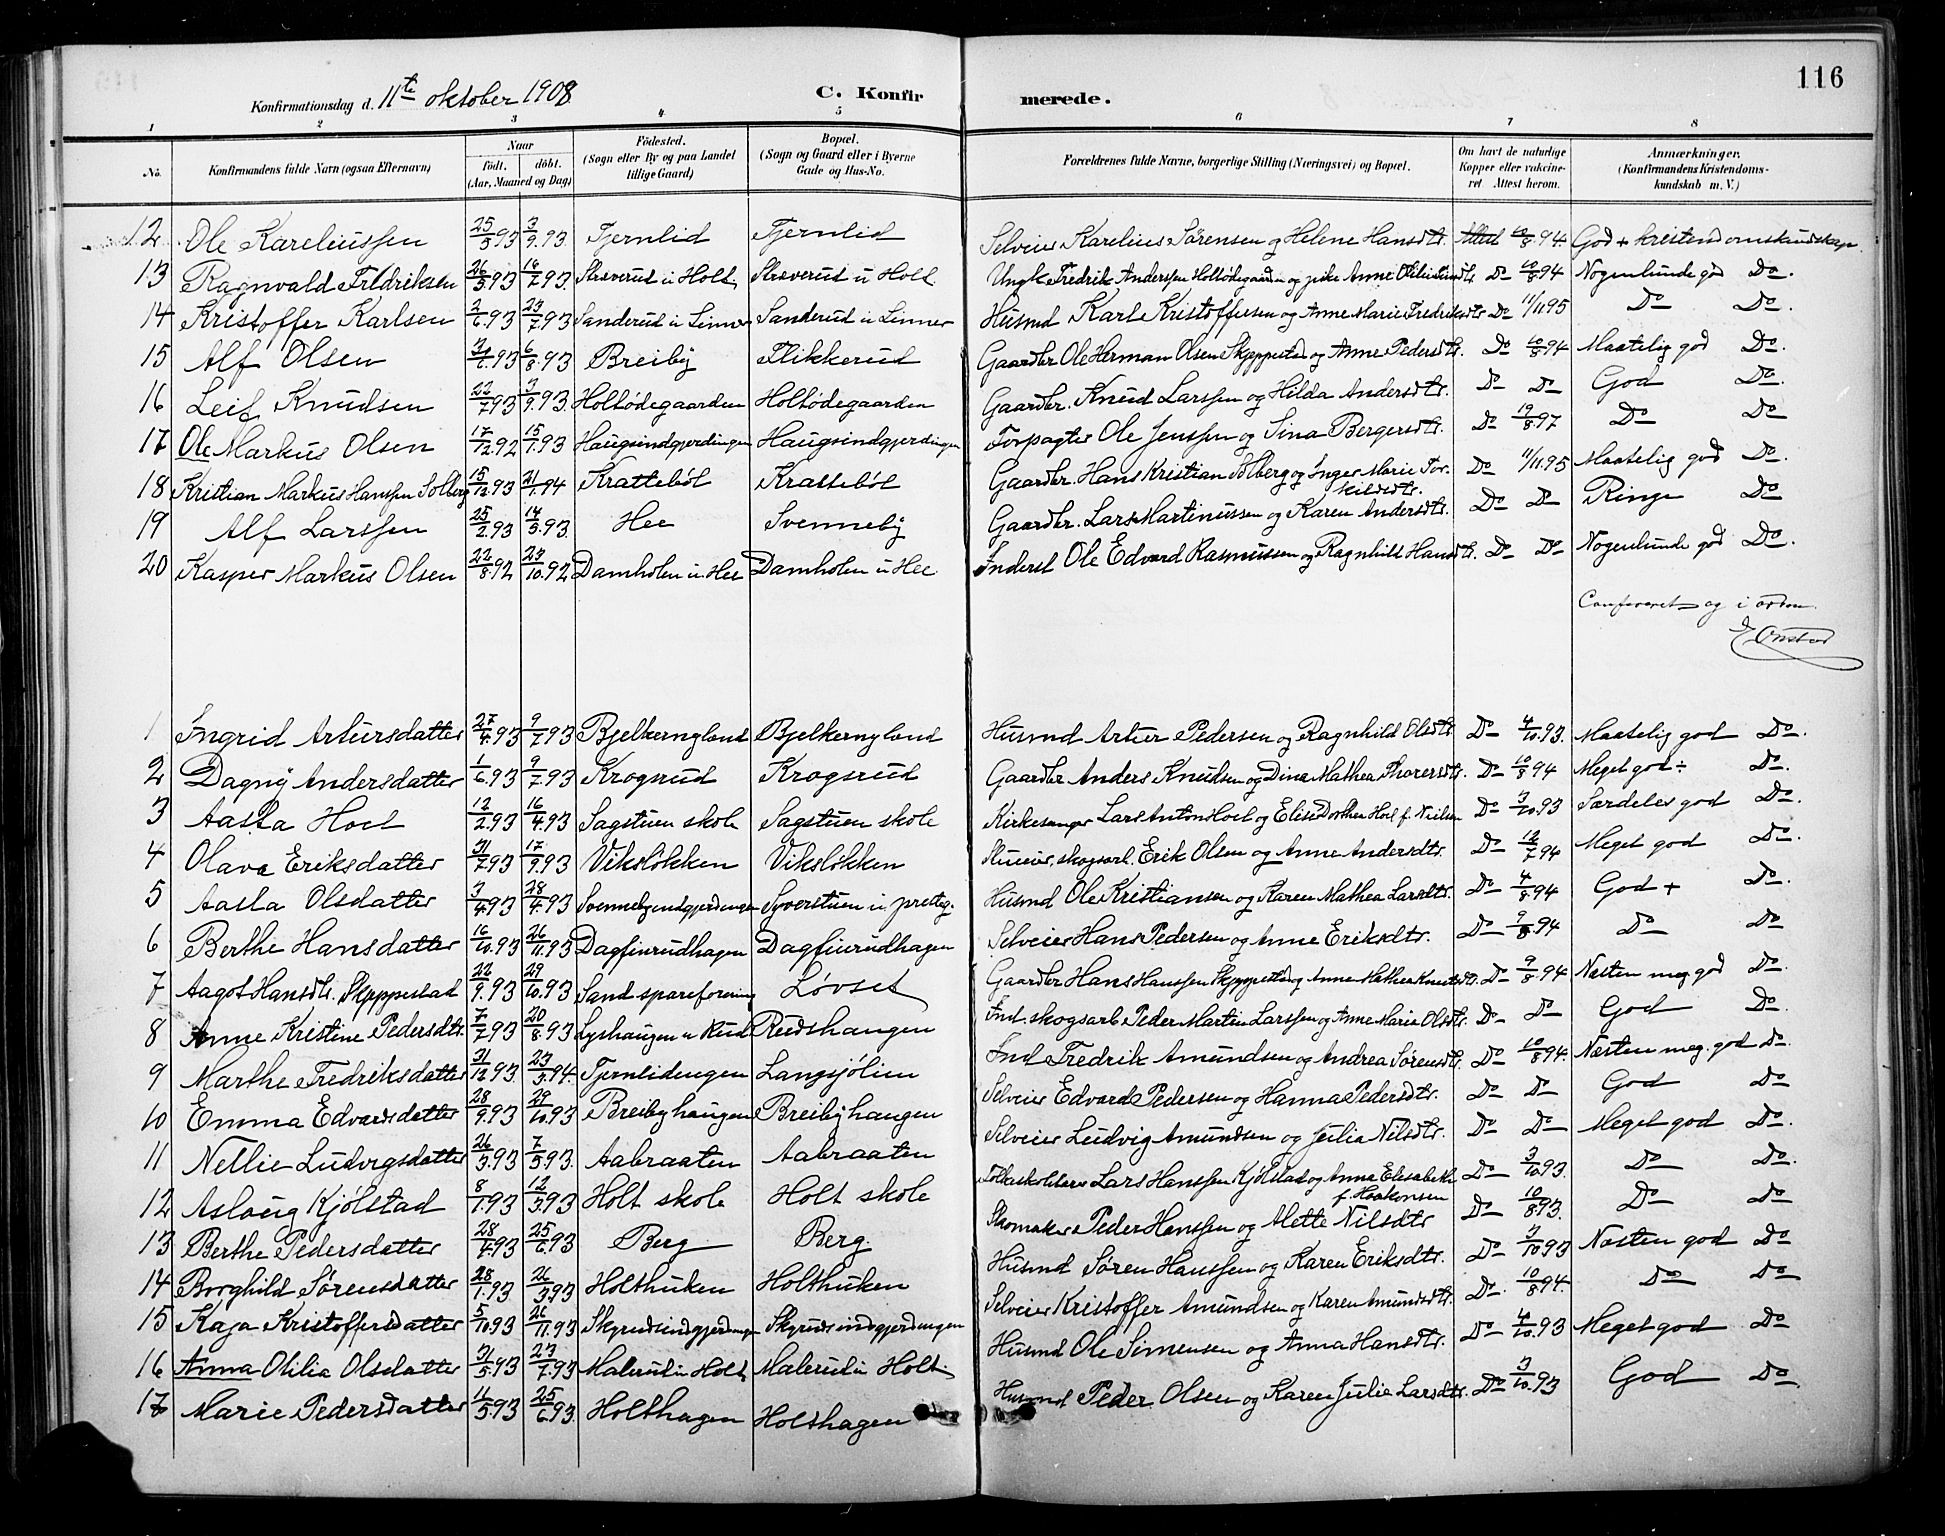 116
Konfirmationsdag d. 11te oktober 1908
C. Konfirmerede.
1 2 3 4 5 6 7 8
No. Konfirmandens fulde Navn (ogsaa Efternavn) Naar født. døbt. (Aar, Maaned og Dag) Födested. (Sogn eller By og paa Landet tillige Gaard) Bopæl. (Sogn og Gaard eller i Byerne Gade og Hus-No. Forældrenes fulde Navne, borgerlige Stilling (Næringsvei) og Bopæl. Om havt de naturlige Kopper eller vakcineret. Attest herom. Anmærkninger. (Konfirmandens Kristendomskundskab m. V.)
12 Ole Kareliussen 25/5.93 3/9.93 Tjernlid Tjernlid Selveier Karelius Sørensen og Helene Hansdtr. Attest 10/8.94 God + kristendomskundskap
13 Ragnvald Fredriksen 26/5.93 16/7.93 Skræverud u Holt Skræverud u Holt Ungk. Fredrik Anderssen Holtødegaarden og pike Anne Do 10/8 94 Nogenlunde god Do.
14 Kristoffer Karlsen 2/6.93 23/7.93 Sanderud u Linner Sanderud u Linner Husmd Karl Kristoffersen og Anne Marie Fredriksdtr Do 11/11 95 Do Do.
15 Alf Olsen 6/8.93 Breiby Flikkerud Gaardbr. Ole Herman Olsen Skjeppestad og Anne Pedersdtr. Do 10/8.94 Maatelig god Do.
16 Leif Knudsen 22/7.93 3/9.93 Holtødegaarden Holtødegaarden Gaardbr. Knud Larssen og Hilda Andersdtr. Do Do God Do.
17 Ole Markus Olsen 17/12.92 15/1.93 Haugsindgjerdingen Haugsindgjerdingen Forpagter Ole Jenssen og Sina Bergersdtr. Do 19/8.97 Do Do
18 Kristian Markus Hanssen Solberg 15/12.93 21/1.94 Kratteböl Kratteböl Gaardbr. Hans Kristian Solberg og Inger Marie Torkildsdtr. Do 11/11.95 Maatelig god Do.
19 Alf Larssen 25/2.93 14/5.93 Hee Svenneby Gaardbr. Lars Martinussen og Karen Andersdtr. Do Do Ringe Do
20 Kasper Markus Olsen 22/8.92 23/10.92 Damholen u Hee Damholen u Hee Inderst Ole Edvard Rasmussen og Ragnhild Hansdtr. Do Do Nogenlunde god Do.
Confereret og i orden.
E Onstad
1 Ingrid Artursdatter 27/4.93 9/7.93 Bjelkernyland Bjelkernyland Husmd Artur Pedersen og Ragnhild Olsdtr Do 4/10.93. Maatelig god Do.
2 Dagny Andersdatter 1/6.93 9/7.93 Krogsrud Krogsrud Gaardbr Anders Knudsen og Dina Mathea Thorersdtr. Do 10/8 94 Meget god ÷ Do.
3 Aasta Hoel 12/2.93 16/4.93 Sagstuen skole Sagstuen skole Kirkesanger Lars Anton Hoel og Elise Dorthea Hoel f. Nielsen Do 3/10.93 Særdeles god Do.
4 Olava Eriksdatter 31/7.93 17/9.93 Viksløkken Viksløkken skogsarb. Erik Olsen og Anne Andersdtr. Do 12/7 94 Meget god Do.
5 Aasta Olsdatter 3/4.93 28/4.93 Svennebyindgjerdingen Syverstuen u. presteg. Husmd Ole Kristiansen og Karen Mathea Larsdtr. Do 4/8 94 God + Do.
6 Berthe Hansdatter 16/10.93 26/11.93 Dagfinrudhagen Dagfinrudhagen Selveier Hans Pedersen og Anne Eriksdtr. Do 9/8.94 Do Do
7 Aagot Hansdtr. Skjeppestad 22/9.93 29/10.93 Sand spareforening Løvset Gaardbr Hans Hanssen Skjeppestad og Anne Mathea Knutsdtr. Do 9/8.94 Næsten meg. god Do.
8 Anne Kristine Pedersdtr. 7/7.93 20/8.93 Lyshaugen u Rud Rudshaugen Ind. skogsarb Peder Martin Larssen og Anne Marie Olsdtr. Do Do God Do.
9 Marthe Fredriksdatter 31/12.93. 23/3.94. Tjernlidengen Langsjölien Ind Fredrik Amundsen og Andrea Sørensdtr. Do 10/8 94. Næsten meg. god Do.
10 Emma Edvardsdatter 28/9.93 29/10.93 Breibyhaugen Breibyhaugen Selveier Edvard Pedersen og Hanna Pedersdtr. Do Do God Do
11 Nellie Ludvigsdatter 26/3.93 7/5.93. Aabraaten Aabraaten Selveier Ludvig Amundsen og Julia Nilsdtr. Do Do Meget god Do.
12 Aslaug Kjølstad 8/1.93 12/3.93 Holt skole Holt skole Lars Hanssen Kjølstad og Anna Elisabeth f. Haakonsen Do 3/10.93. Do Do.
13 Berthe Pedersdatter 28/4.93 25/6.93 Berg Berg Skomaker Peder Hanssen og Mette Nilsdtr Do 10/8.93. Do Do
14 Borghild Sørensdatter 28/1.93 26/3.93 Holthuken Holthuken Husmd Søren Hanssen og Karen Eriksdtr. Do 3/10 93 Næsten god Do
15 Kaja Kristoffersdatter 5/10 93 26/11.93 Skyrudsindgjerdingen Skyrudsindgjerdingen Selveier Kristoffer Amundsen og Karen Amundsdtr. Do. 10/8 94. Do Do
16 Anna Otilia Olsdatter 31/5.93 23/7.93 Malerud u Holt Malerud u Holt Husmd Ole Simensen og Anna Hansdtr. Do 4/10.93 Meget god Do
17 Marie Pedersdatter 11/5.93 25/6.93 Holthagen Holthagen Husmd Peder Olsen og Karen Julie Larsdtr. Do 3/10.93 God Do.